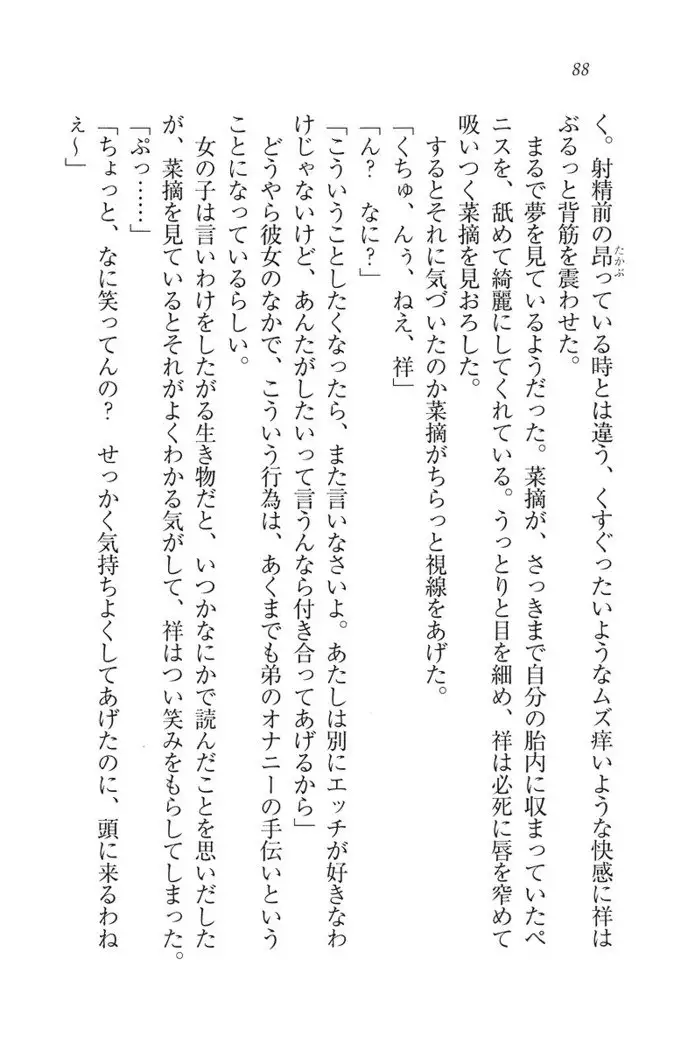 88
く。射精前の昂っている時とは違う、くすぐったいようなムズ痒いような快感に祥は
たかぶ
ぶるっと背筋を震わせた。
まるで夢を見ているようだった。菜摘が、さっきまで自分の胎内に収まっていたペ
ニスを、舐めて綺麗にしてくれている。うっとりと目を細め、祥は必死に唇を窄めて
吸いつく菜摘を見おろした。
するとそれに気づいたのか菜摘がちらっと視線をあげた。
「くちゅ、んぅ、ねえ、祥」
「ん？　なに？」
「こういうことしたくなったら、また言いなさいよ。あたしは別にエッチが好きなわ
けじゃないけど、あんたがしたいって言うんなら付き合ってあげるから」
どうやら彼女のなかで、こういう行為は、あくまでも弟のオナニーの手伝いという
ことになっているらしい。
女の子は言いわけをしたがる生き物だと、いつかなにかで読んだことを思いだした
が、菜摘を見ているとそれがよくわかる気がして、祥はつい笑みをもらしてしまった。
「ぷっ……」
「ちょっと、なに笑ってんの？　せっかく気持ちよくしてあげたのに、頭に来るわね
ぇ〜」